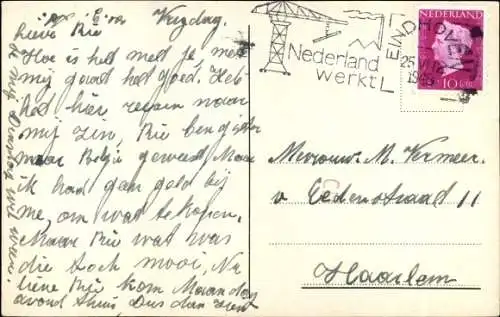 Vrijdag.
Lieve Rie
Hoe is het met je, met
mij gaat het goed. Heb
het hier reizen naar
mijn zin, Rie ben gister
naar België geweest Maar
ik had geen geld bij
me, om wat te kopen.
Maar Rie wat was
die toch mooi, Na
lieve Rie kom Maandag
avond thuis, Dus dan
Nederland
werkt
EINDHOVEN
25
194
NEDERLAND
10
Mevrouw. M. Vermeer.
v Eedenstraat 11
Haarlem